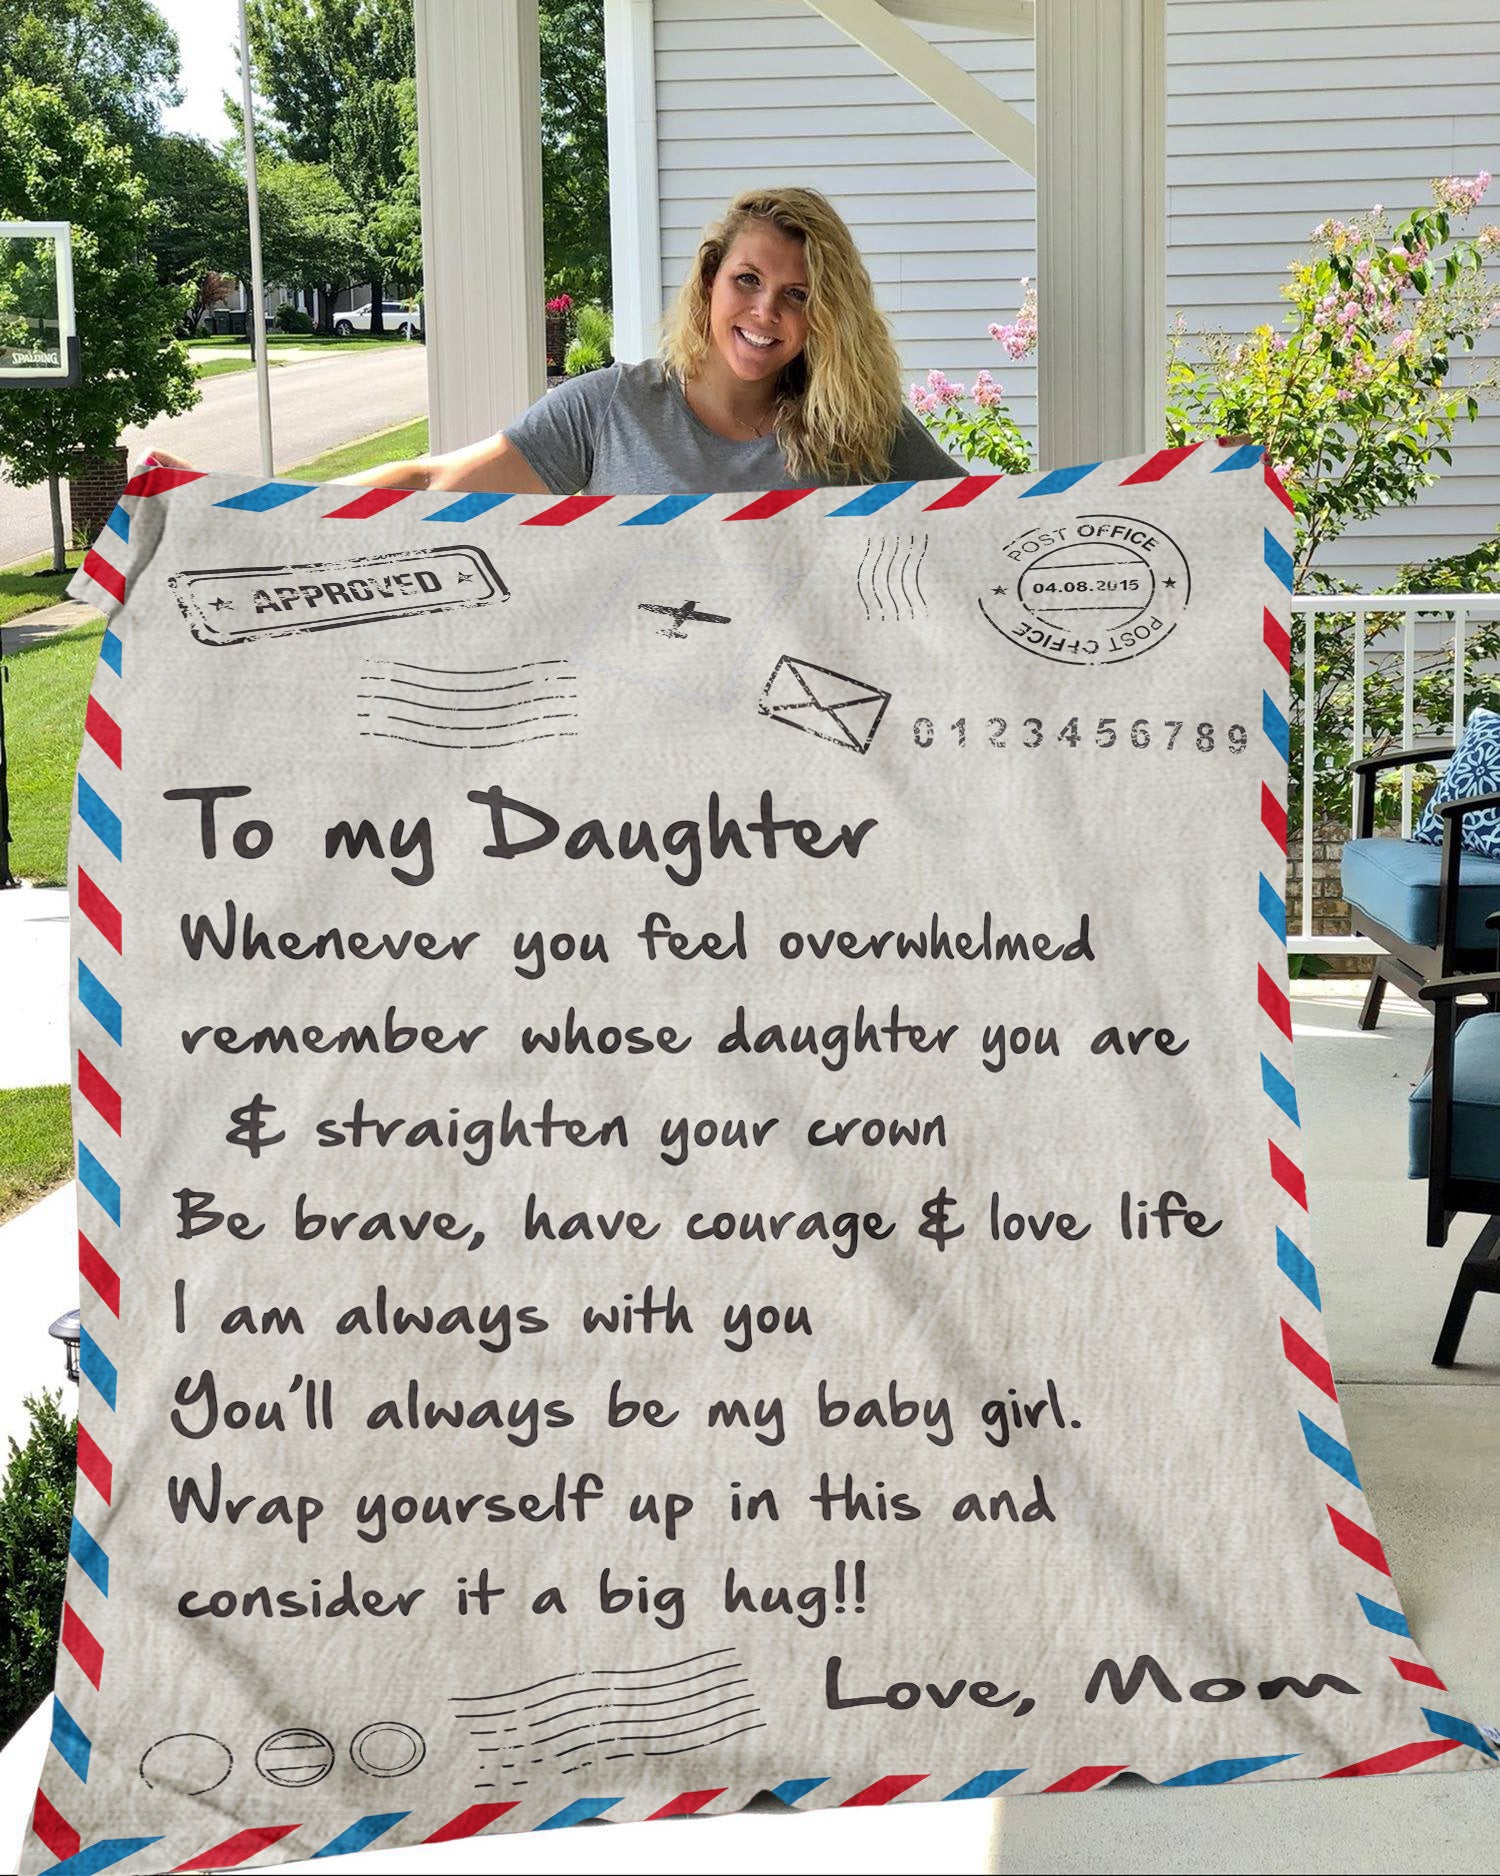 SPALDING
APPROVED
POST OFFICE
04.08.2015
POST OFFICE
0123456789
To my Daughter
Whenever you feel overwhelmed
remember whose daughter you are
& straighten your crown
Be brave, have courage & love life
I am always with you
You'll always be my baby girl.
Wrap yourself up in this and
consider it a big hug!!
Love, Mom